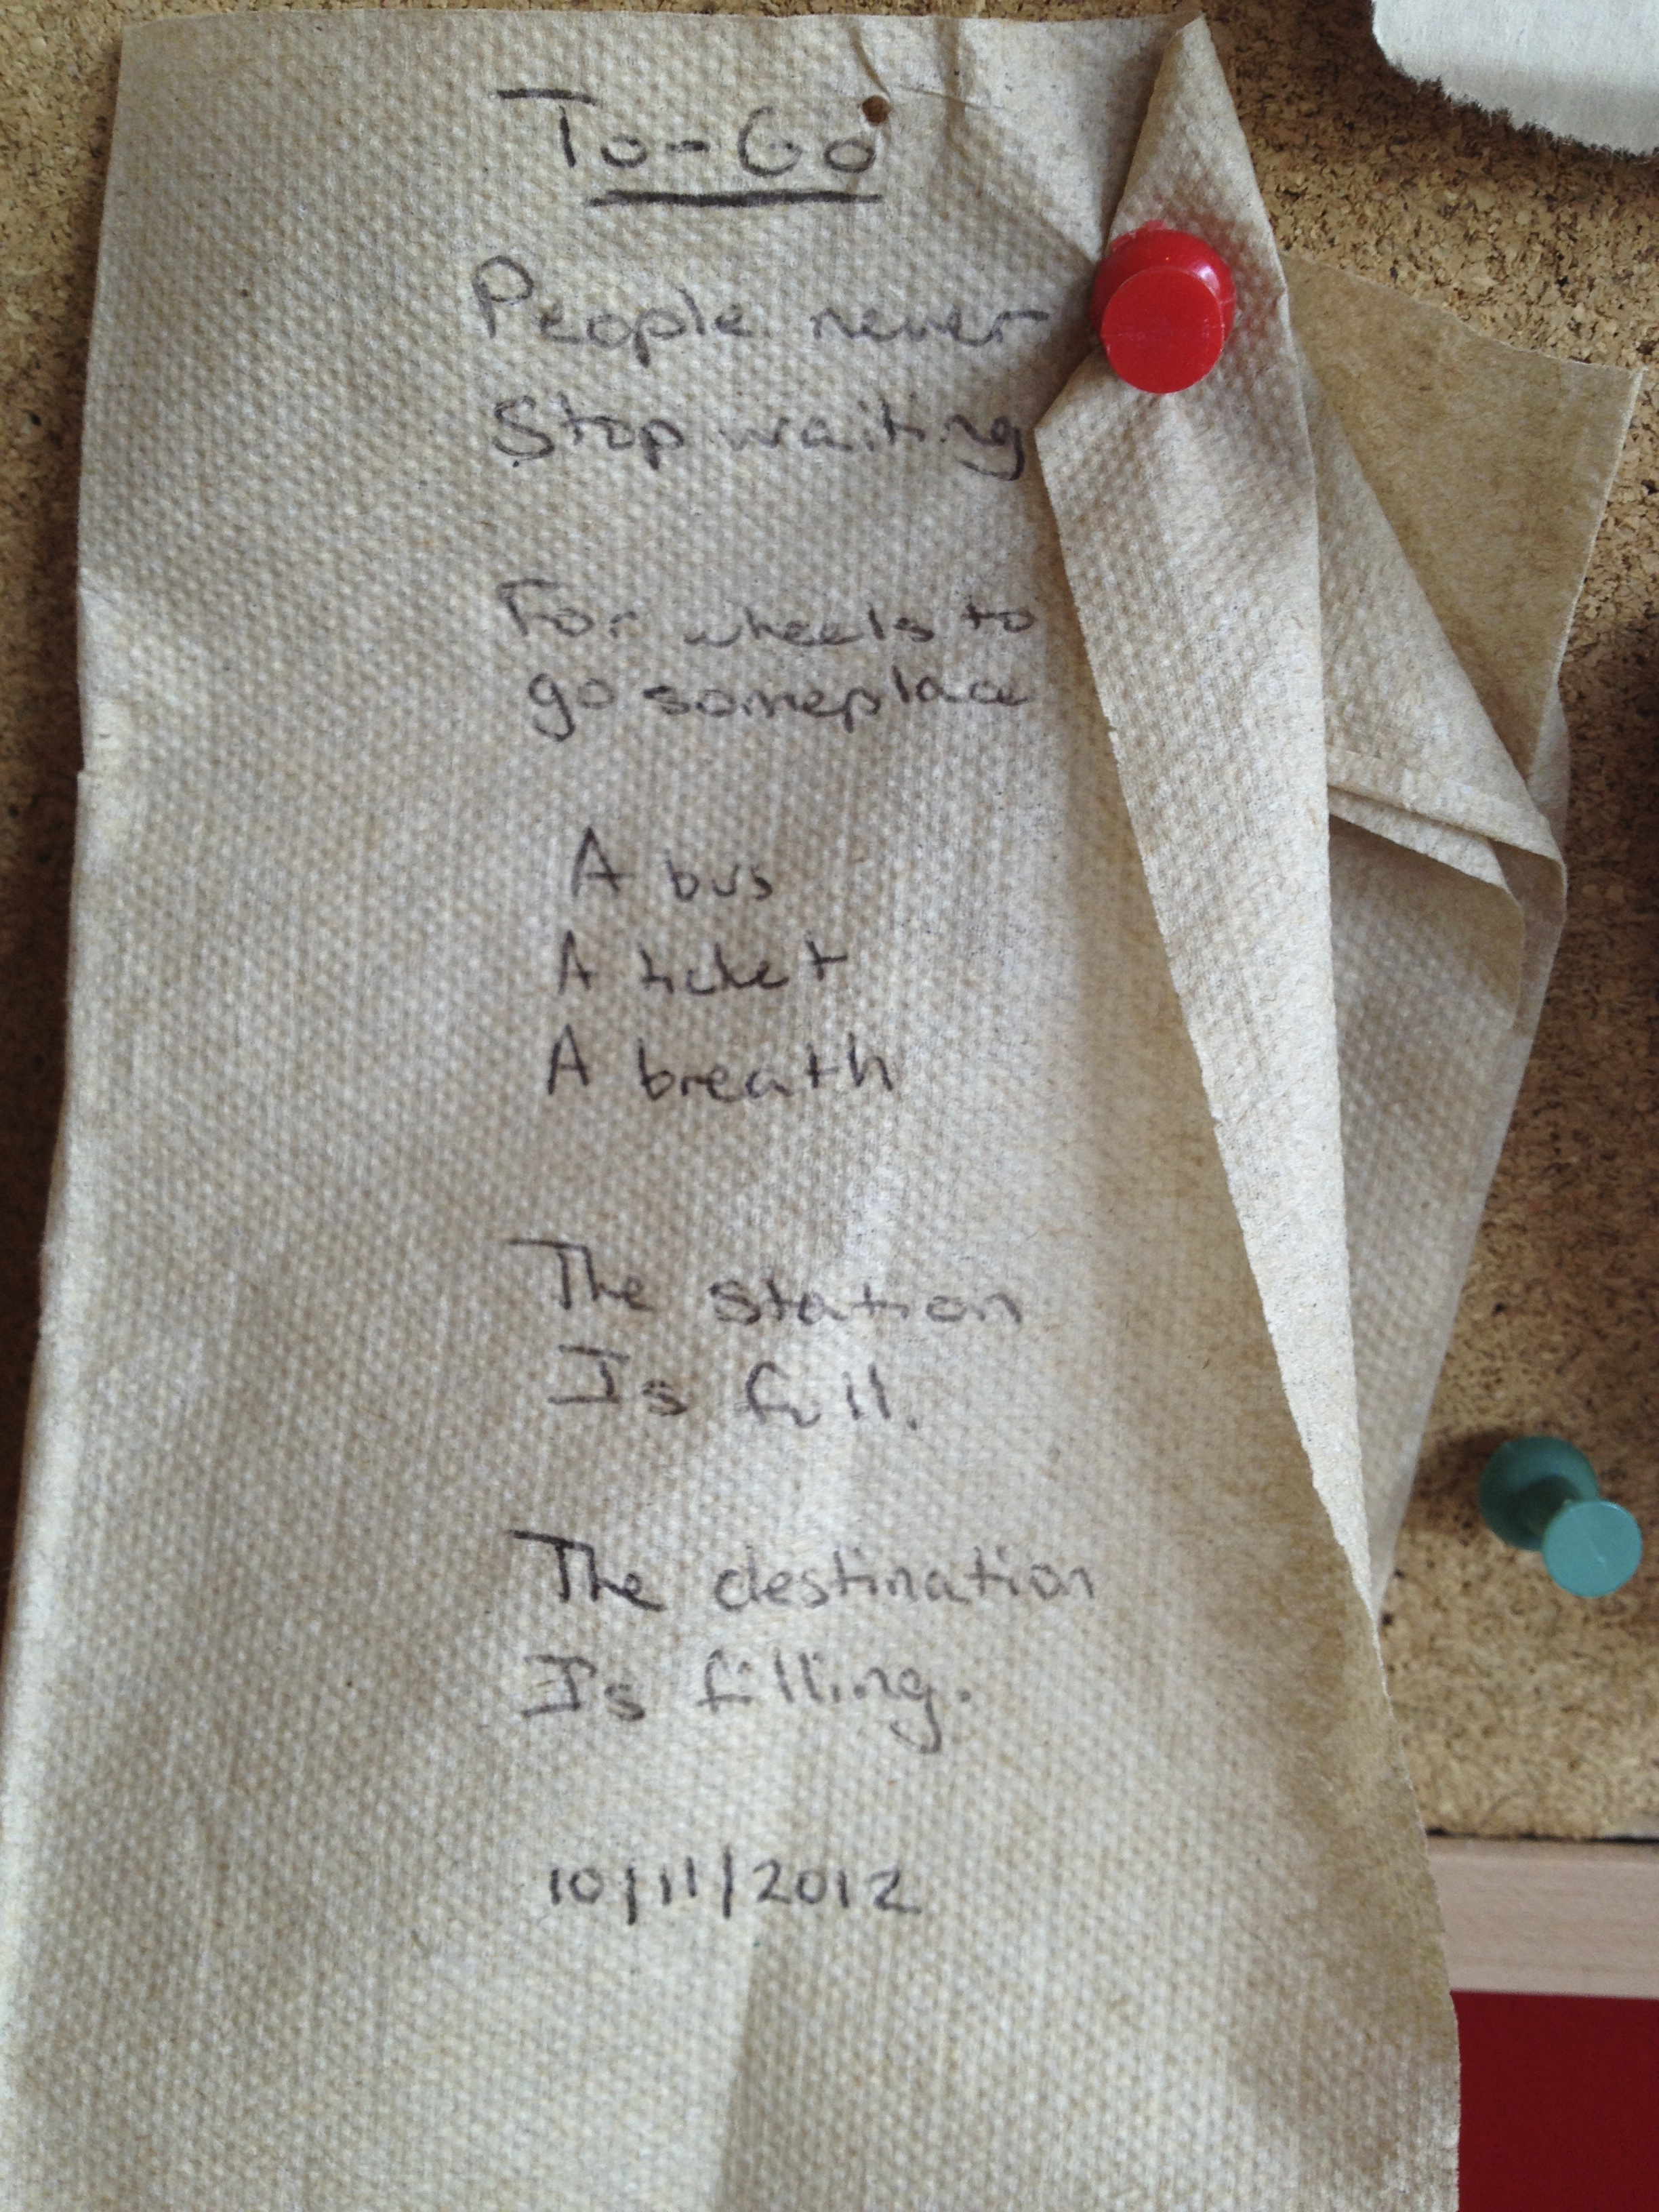 To-Go
People never
Stop waiting
For wheels to
go someplace
A bus
A ticket
A breath
The station
Is full.
The destination
Is filling.
10/11/2012